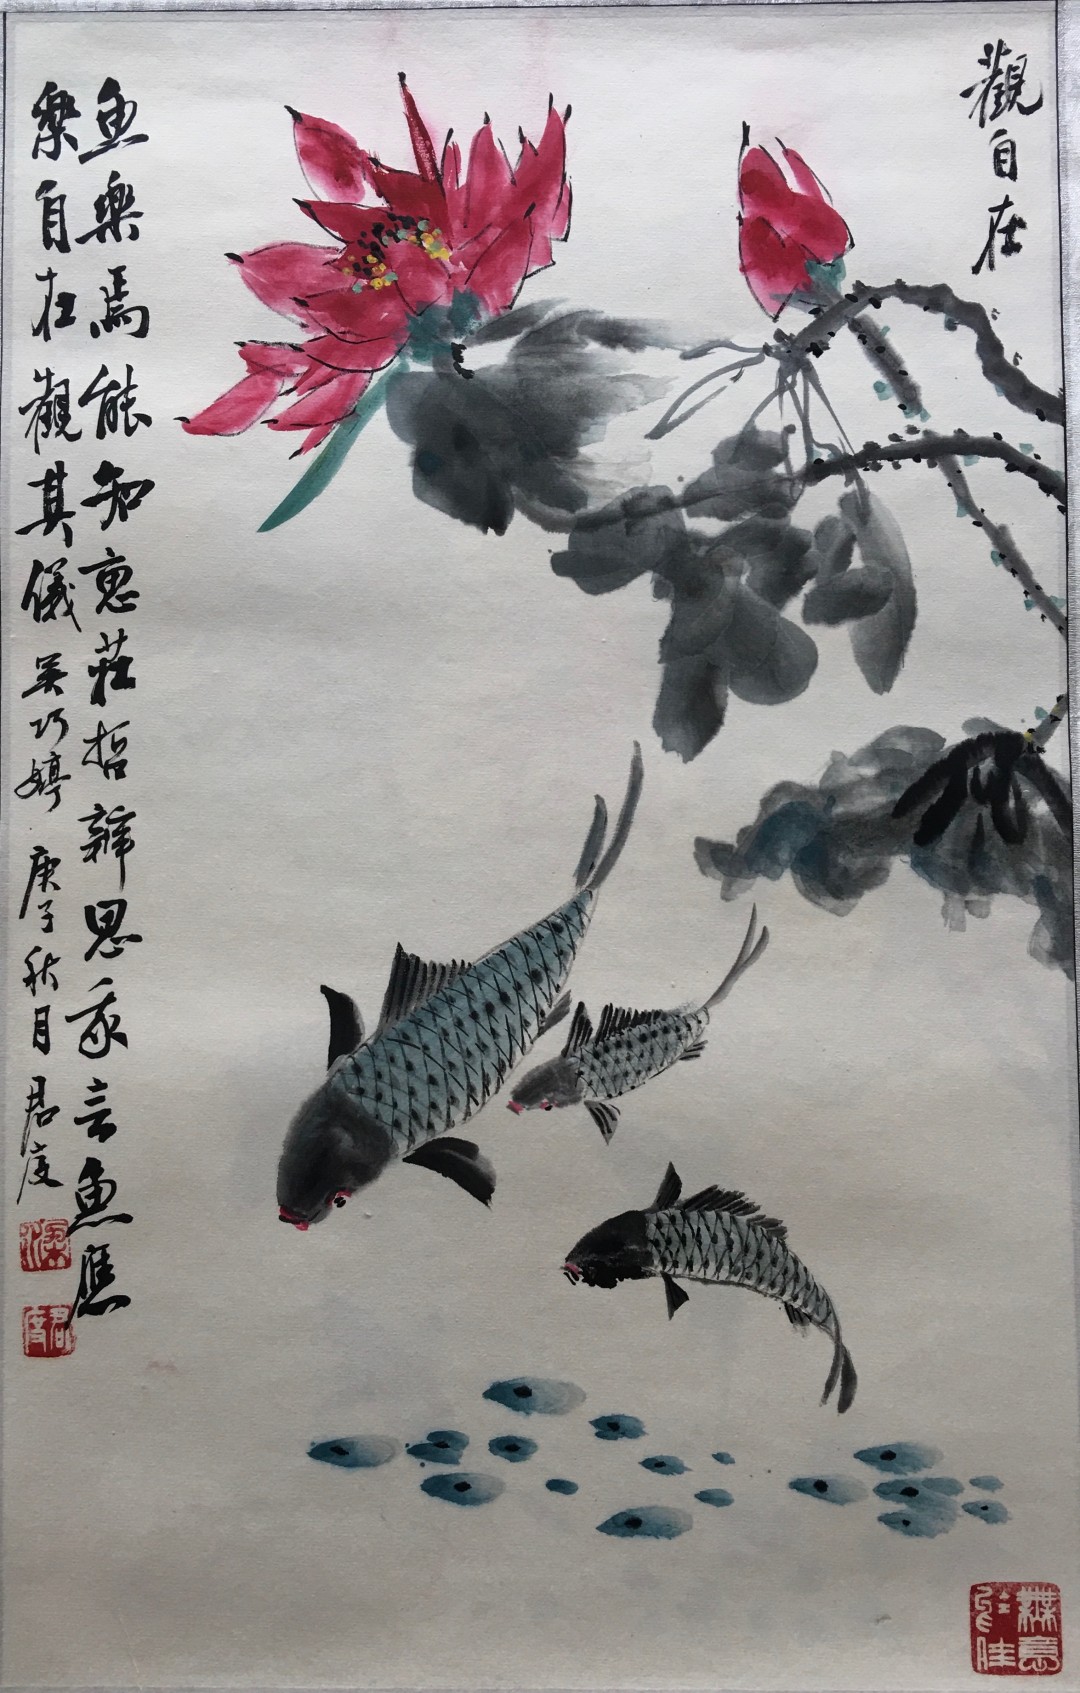 觀自在
魚樂焉能知惠莊哲辯思我言魚應
樂自在觀其儀 吴巧婷 庚子秋月 君度
君度
無意